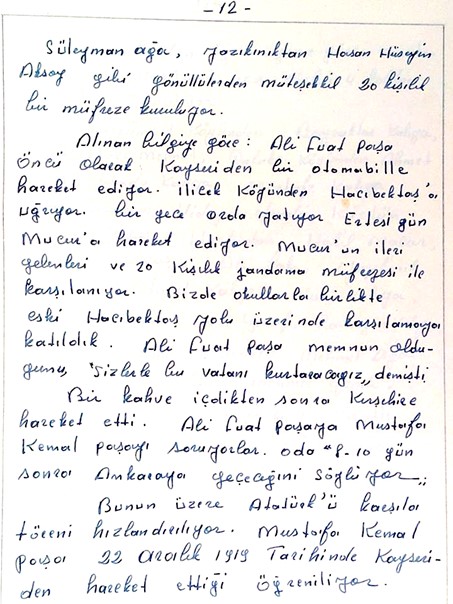 - 12 -
Süleyman ağa, yazıkınıktan Hasan Hüseyin
Aksoy gibi gönüllülerden müteşekkil 20 kişilik
bir müfreze kuruluyor.
Alınan bilgiye göre: Ali Fuat paşa
Öncü olarak Kayseriden bir otomobille
hareket ediyor. İlicek Köyünden Hacıbektaş'a
uğruyor. bir gece orda yatıyor Ertesi gün
Mucur'a hareket ediyor. Mucur'un ileri
gelenleri ve 20 Kişilik jandarma müfrezesi ile
karşılanıyor. Bizde okullarla birlikte
eski Hacıbektaş yolu üzerinde karşılamaya
katıldık. Ali Fuat paşa memnun oldu-
ğunu, "Sizlerle bu vatanı kurtaracağız,, demişti
Bir kahve içdikten sonra Kırşehire
hareket etti. Ali Fuat paşaya Mustafa
Kemal paşayı soruyorlar. oda "8-10 gün
sonra Ankaraya geçeceğini söylüyor,,
Bunun üzere Atatürk'ü karşıla
töreni hızlandırılıyor. Mustafa Kemal
paşa 22 Aralık 1919 Tarihinde Kayseri-
den hareket ettiği öğreniliyor.